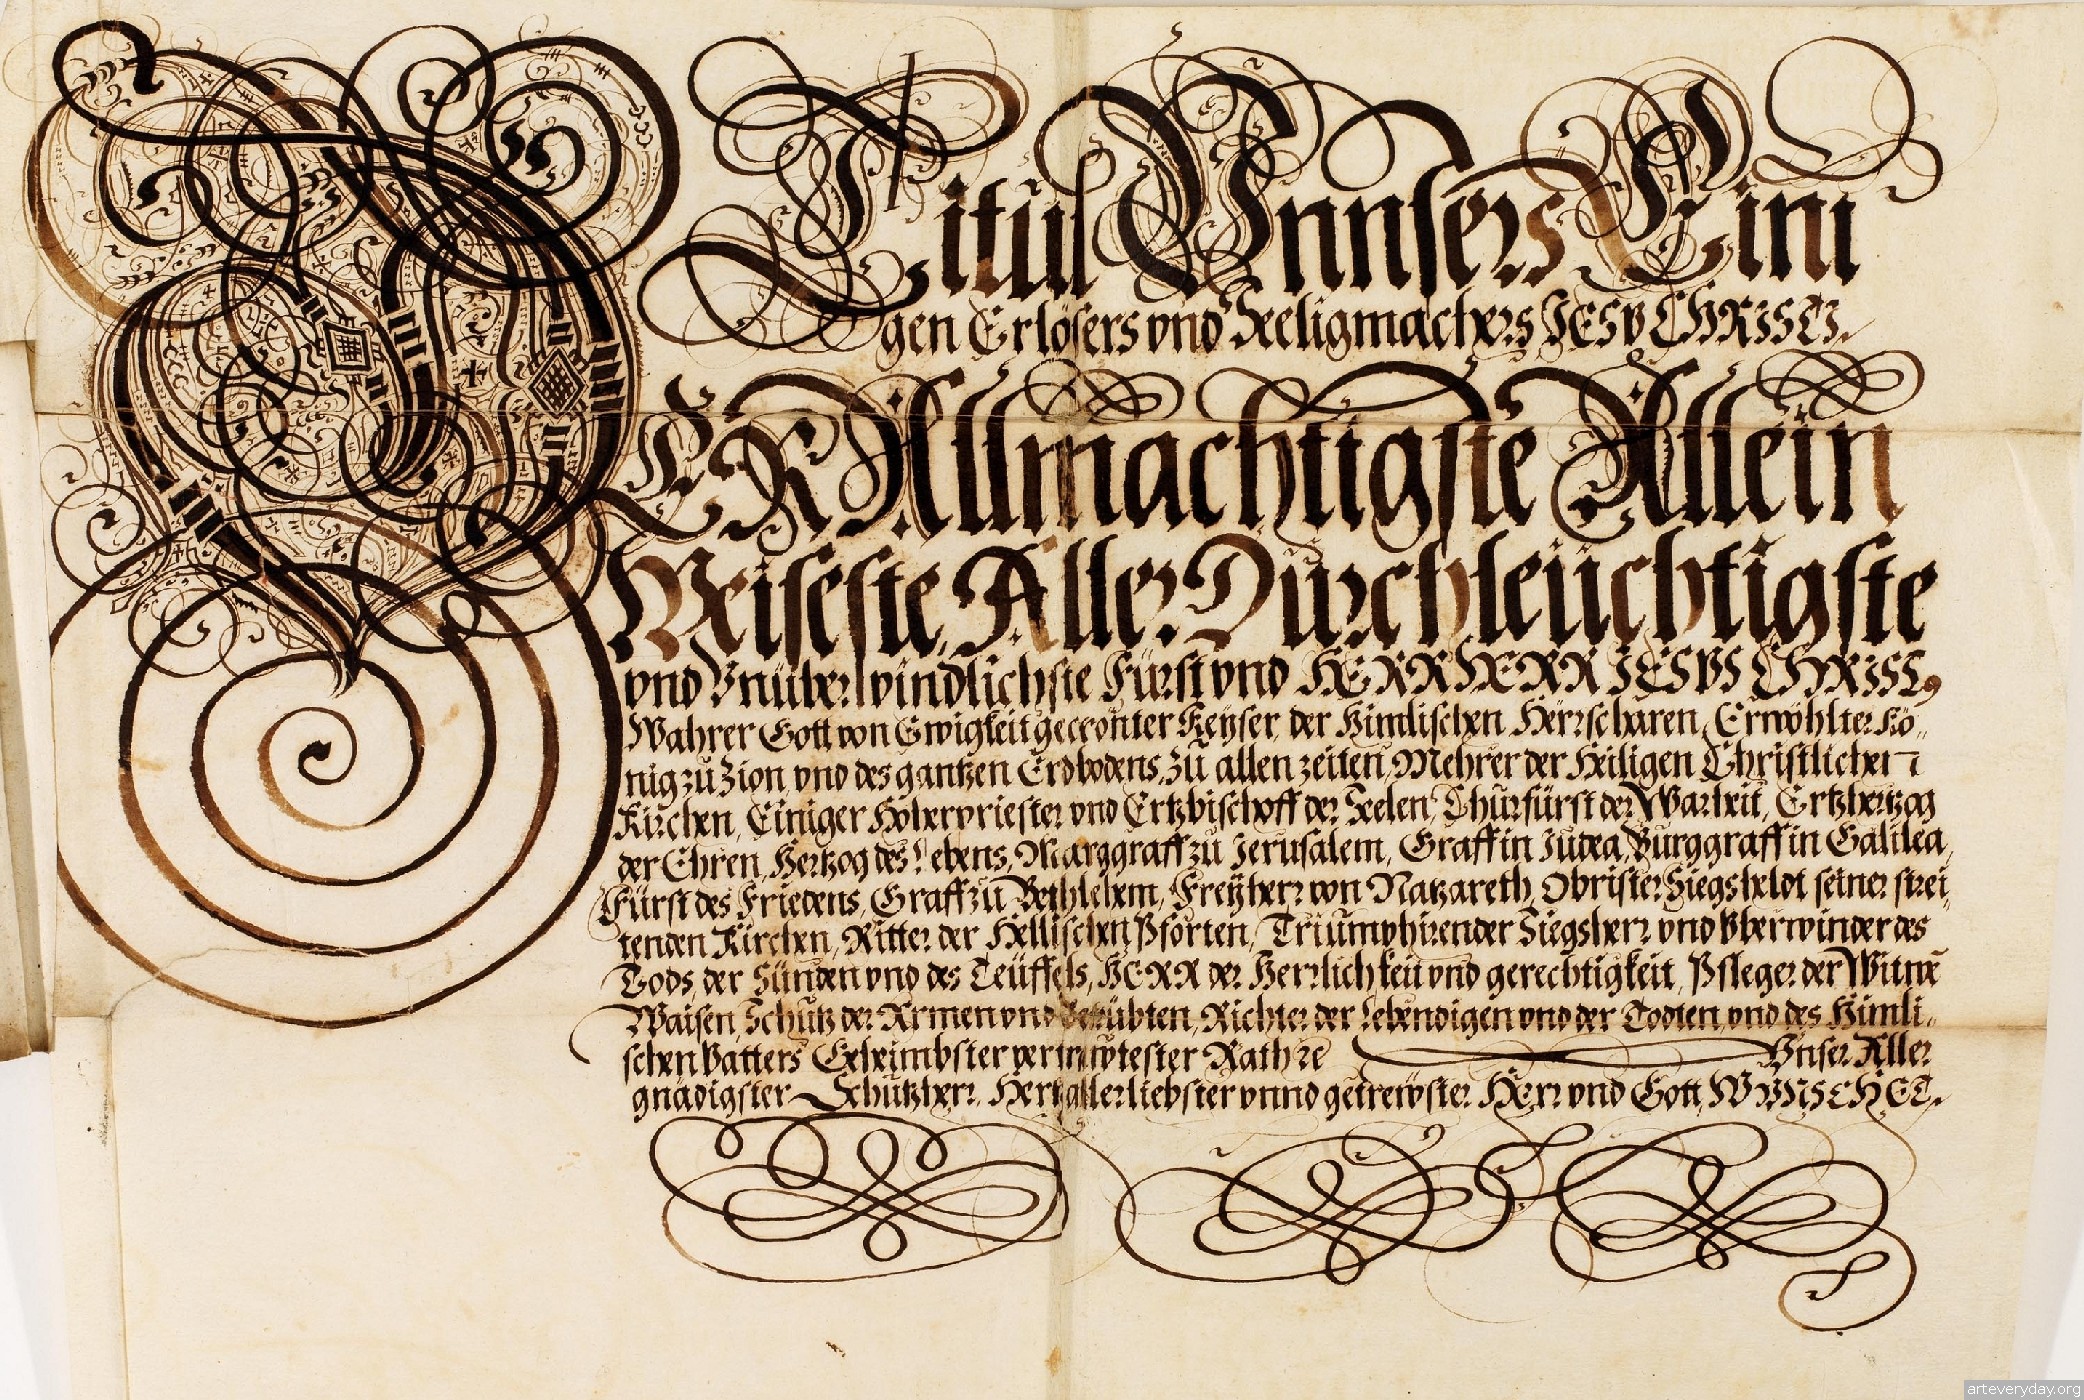 Titul Vnnsers Eini
gen Erlösers vnd Seeligmachers JESV CHRISTI.
DER Allmachtigste Allein
Weiseste, Aller Durchleüchtigste
vnd Vnüberwindlichste Fürst vnd HERR HERR JESVS CHRIST9
Wahrer Gott von Ewigkeit gecronter Keÿser, der Himlischen Herrscharen, Erwöhlter Kö„
nig zu Zion, vnd des gantzen Erdbodens, Zu allen zeiten, Mehrer der Heiligen Christlichen
Kirchen, Einiger Hoherpriester vnd Ertzbischoff der Seelen, Churfürst der Warheit, Ertzhertzog
der Ehren, Hertzog des Lebens, Marggraff zu Jerusalem, Graff in Judea, Burggraff in Galilea,
Fürst des Friedens, Graff zu Bethlehem, Freÿherr von Natzareth, Obrister Siegsheldt seiner strei„
tenden Kirchen, Ritter der Hellischen Pforten, Triumphirender Siegsherr vnd Vberwinder des
Tods, der Sünden vnd des Teüffels, HERR der Herrlichkeit vnd gerechtigkeit, Pfleger der Witwē
Waisen, Schutz der Armen vnd Betrübten, Richter der Lebendigen vnd der Todten, vnd des Himli„
schen Vatters Geheimbster vertrawtester Rath ꝛc Vnser Aller
gnädigster Schutzherr, Hertzallerliebster vnnd getrewster Herr vnd Gott, WVNSCHET.
arteveryday.org